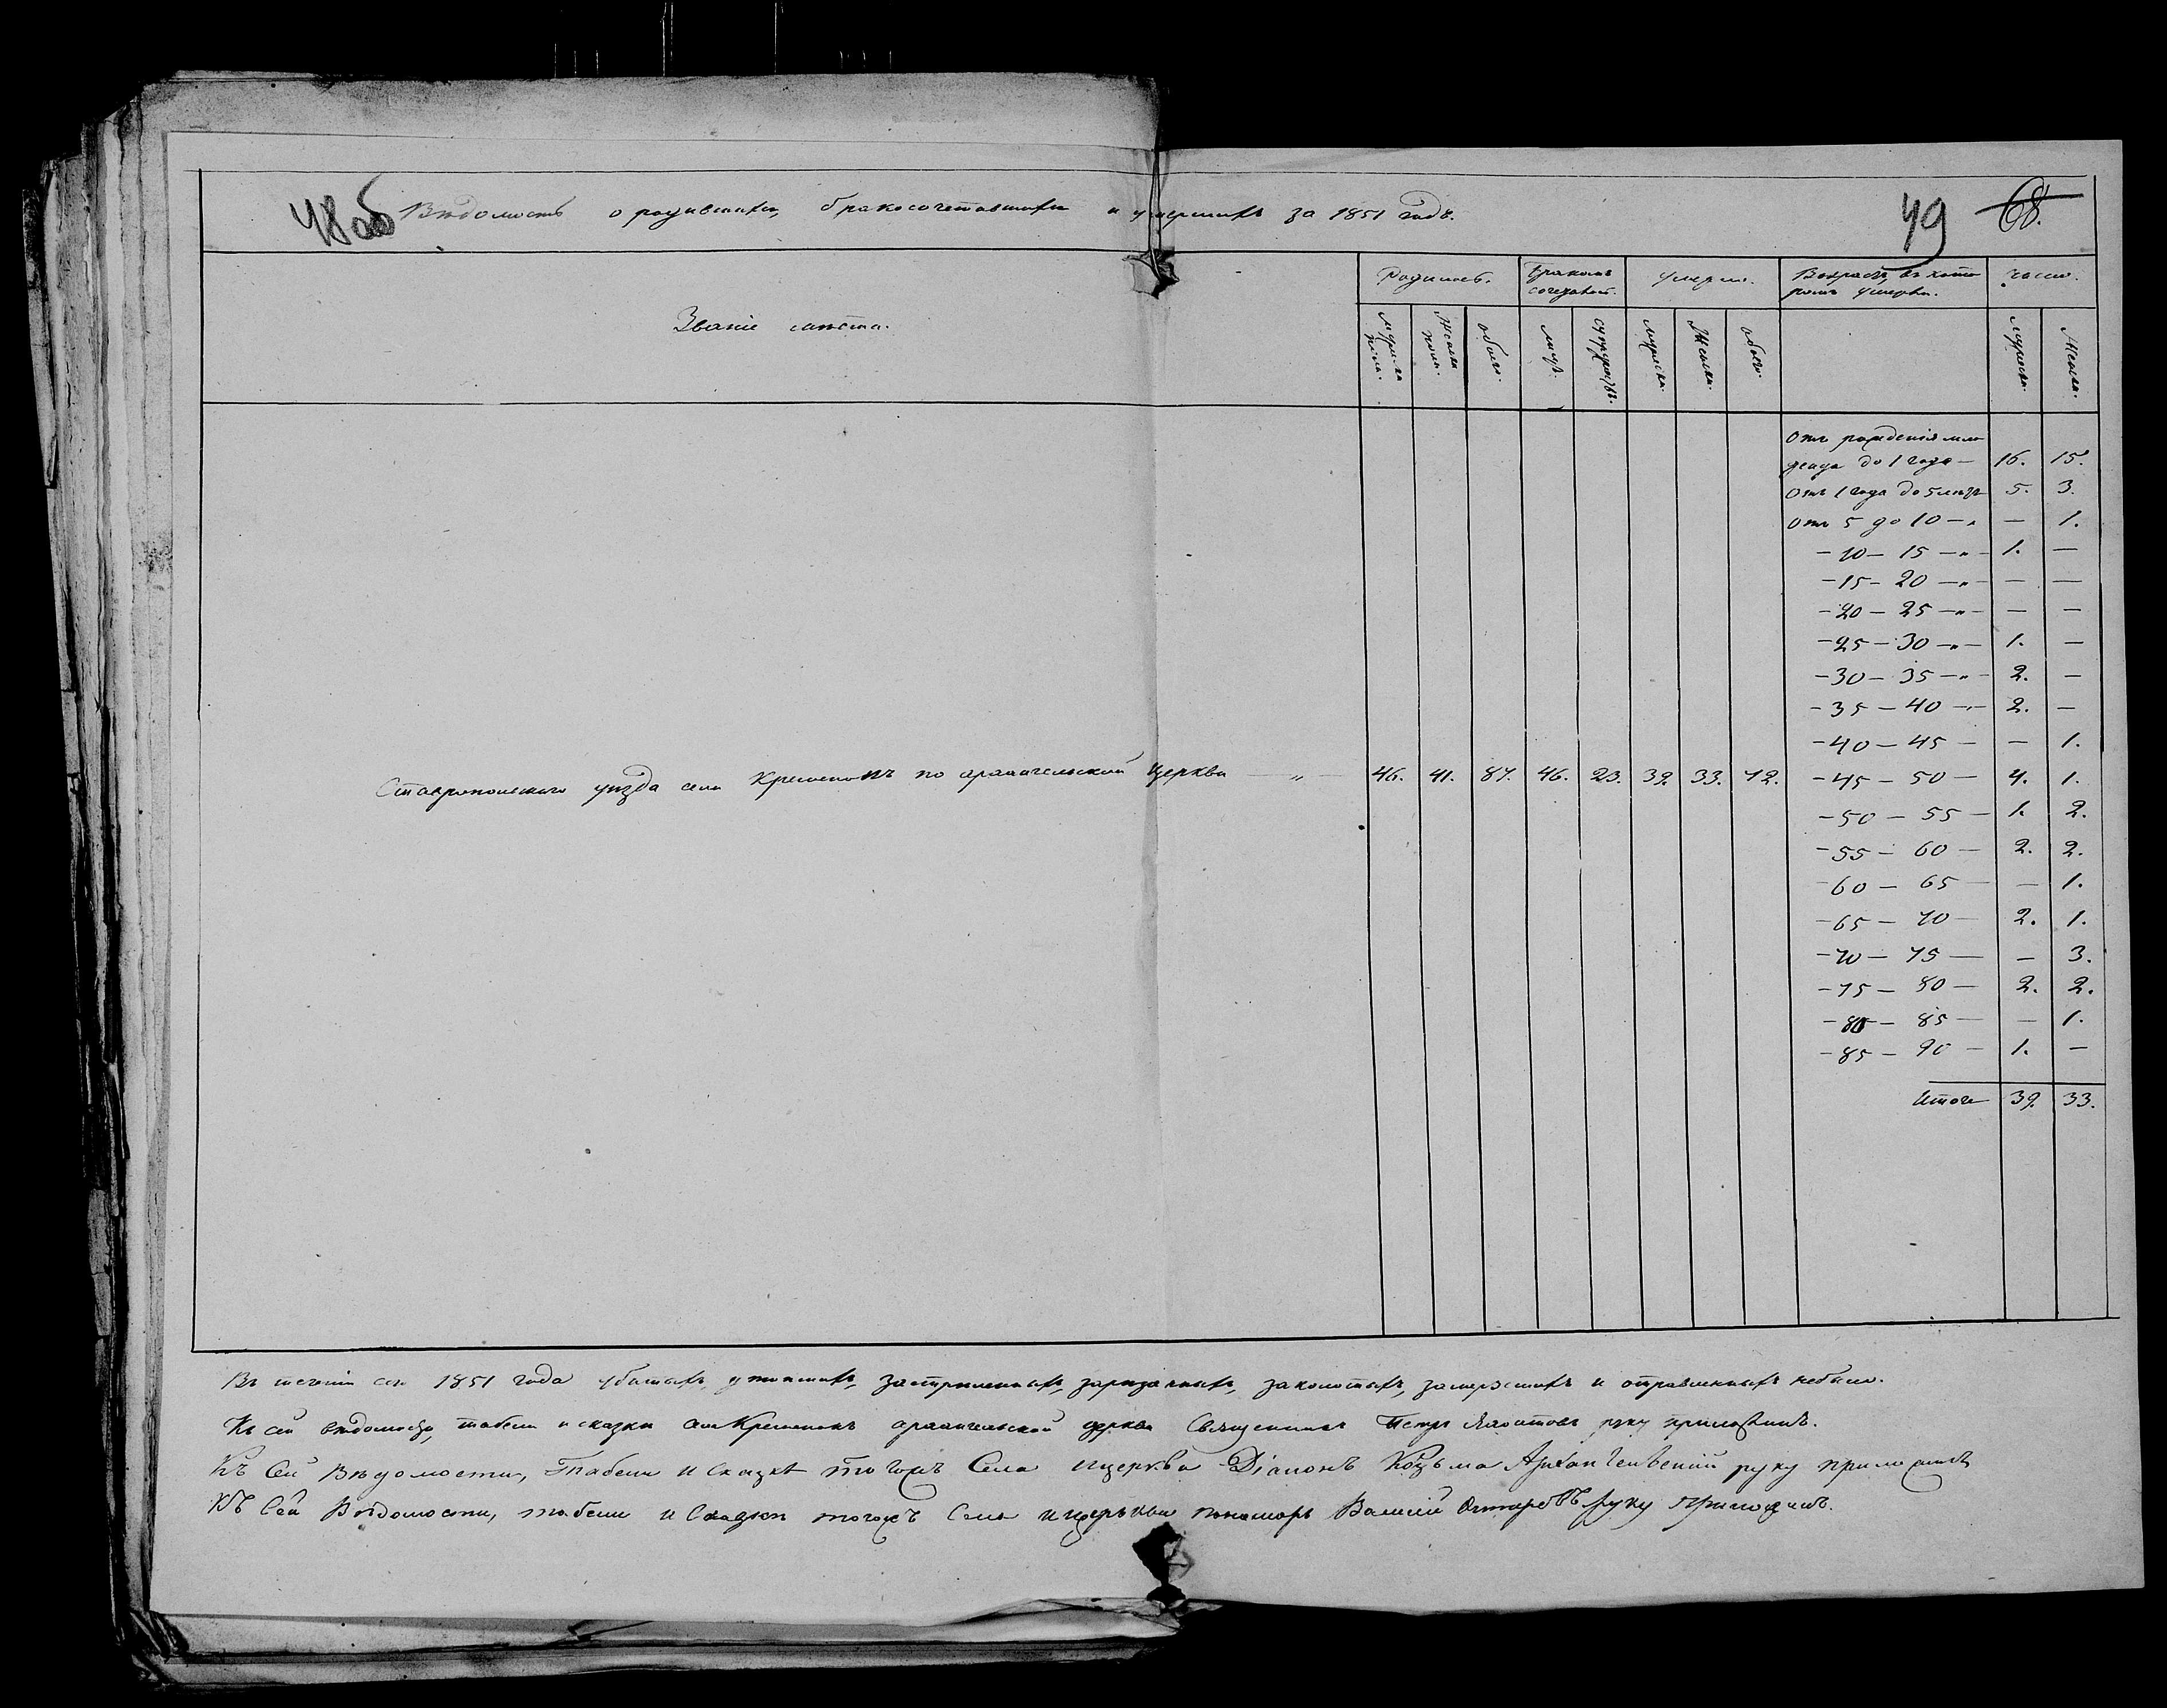 48об Вѣдомость о родившихся, бракосочетавшихся и умершихъ за 1851 годъ. 49 68.
Званіе мѣста.
Родилось. Бракомъ сочетавш. Умерло. Возрастъ, въ кото ромъ умерли. Число.
мужеска пола. Женска пола. обоего. лицъ. супружествъ. мужеска. Женска. обоего. мужеска. Женска.
Отъ рожденія мла
денца до 1 года — 16. 15.
Отъ 1 года до 5 лѣтъ 5. 3.
Отъ 5 до 10 — „ — 1.
— 10 — 15 — „ — 1. —
— 15 — 20 — „ — — —
— 20 — 25 — „ — — —
— 25 — 30 — „ — 1. —
— 30 — 35 — „ — 2. —
— 35 — 40 — „ — 2. —
— 40 — 45 — — 1.
Ставропольскаго уѣзда села Кременокъ по архангельской церкви — „ — 46. 41. 87. 46. 23. 39. 33. 72. — 45 — 50 — 4. 1.
— 50 — 55 — 1. 2.
— 55 — 60 — 2. 2.
— 60 — 65 — — 1.
— 65 — 70 — 2. 1.
— 70 — 75 — — 3.
— 75 — 80 — 2. 2.
— 80 — 85 — — 1.
— 85 — 90 — 1. —
Итого 39. 33.
Въ теченіи сего 1851 года убитыхъ, утопшихъ, застрѣленныхъ, зарѣзанныхъ, заколотыхъ, замерзшихъ и отравленныхъ небыло.
Къ сей вѣдомости, табели и сказки села Кременокъ архангельской церкви Священникъ Петръ руку приложилъ.
Къ Сей Вѣдомости, Табели и Сказкѣ тогожъ Села и церкви Діаконъ Козьма Архангельскій руку приложилъ
Къ Сей Вѣдомости, табели и Сказки тогожъ Села и церькви пономарь Василій руку приложилъ.